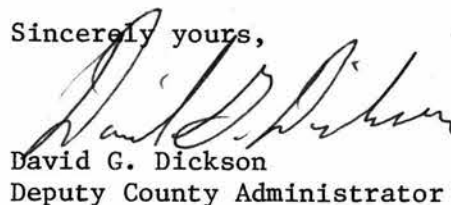 Sincerely yours,
David G. Dickson
David G. Dickson
Deputy County Administrator